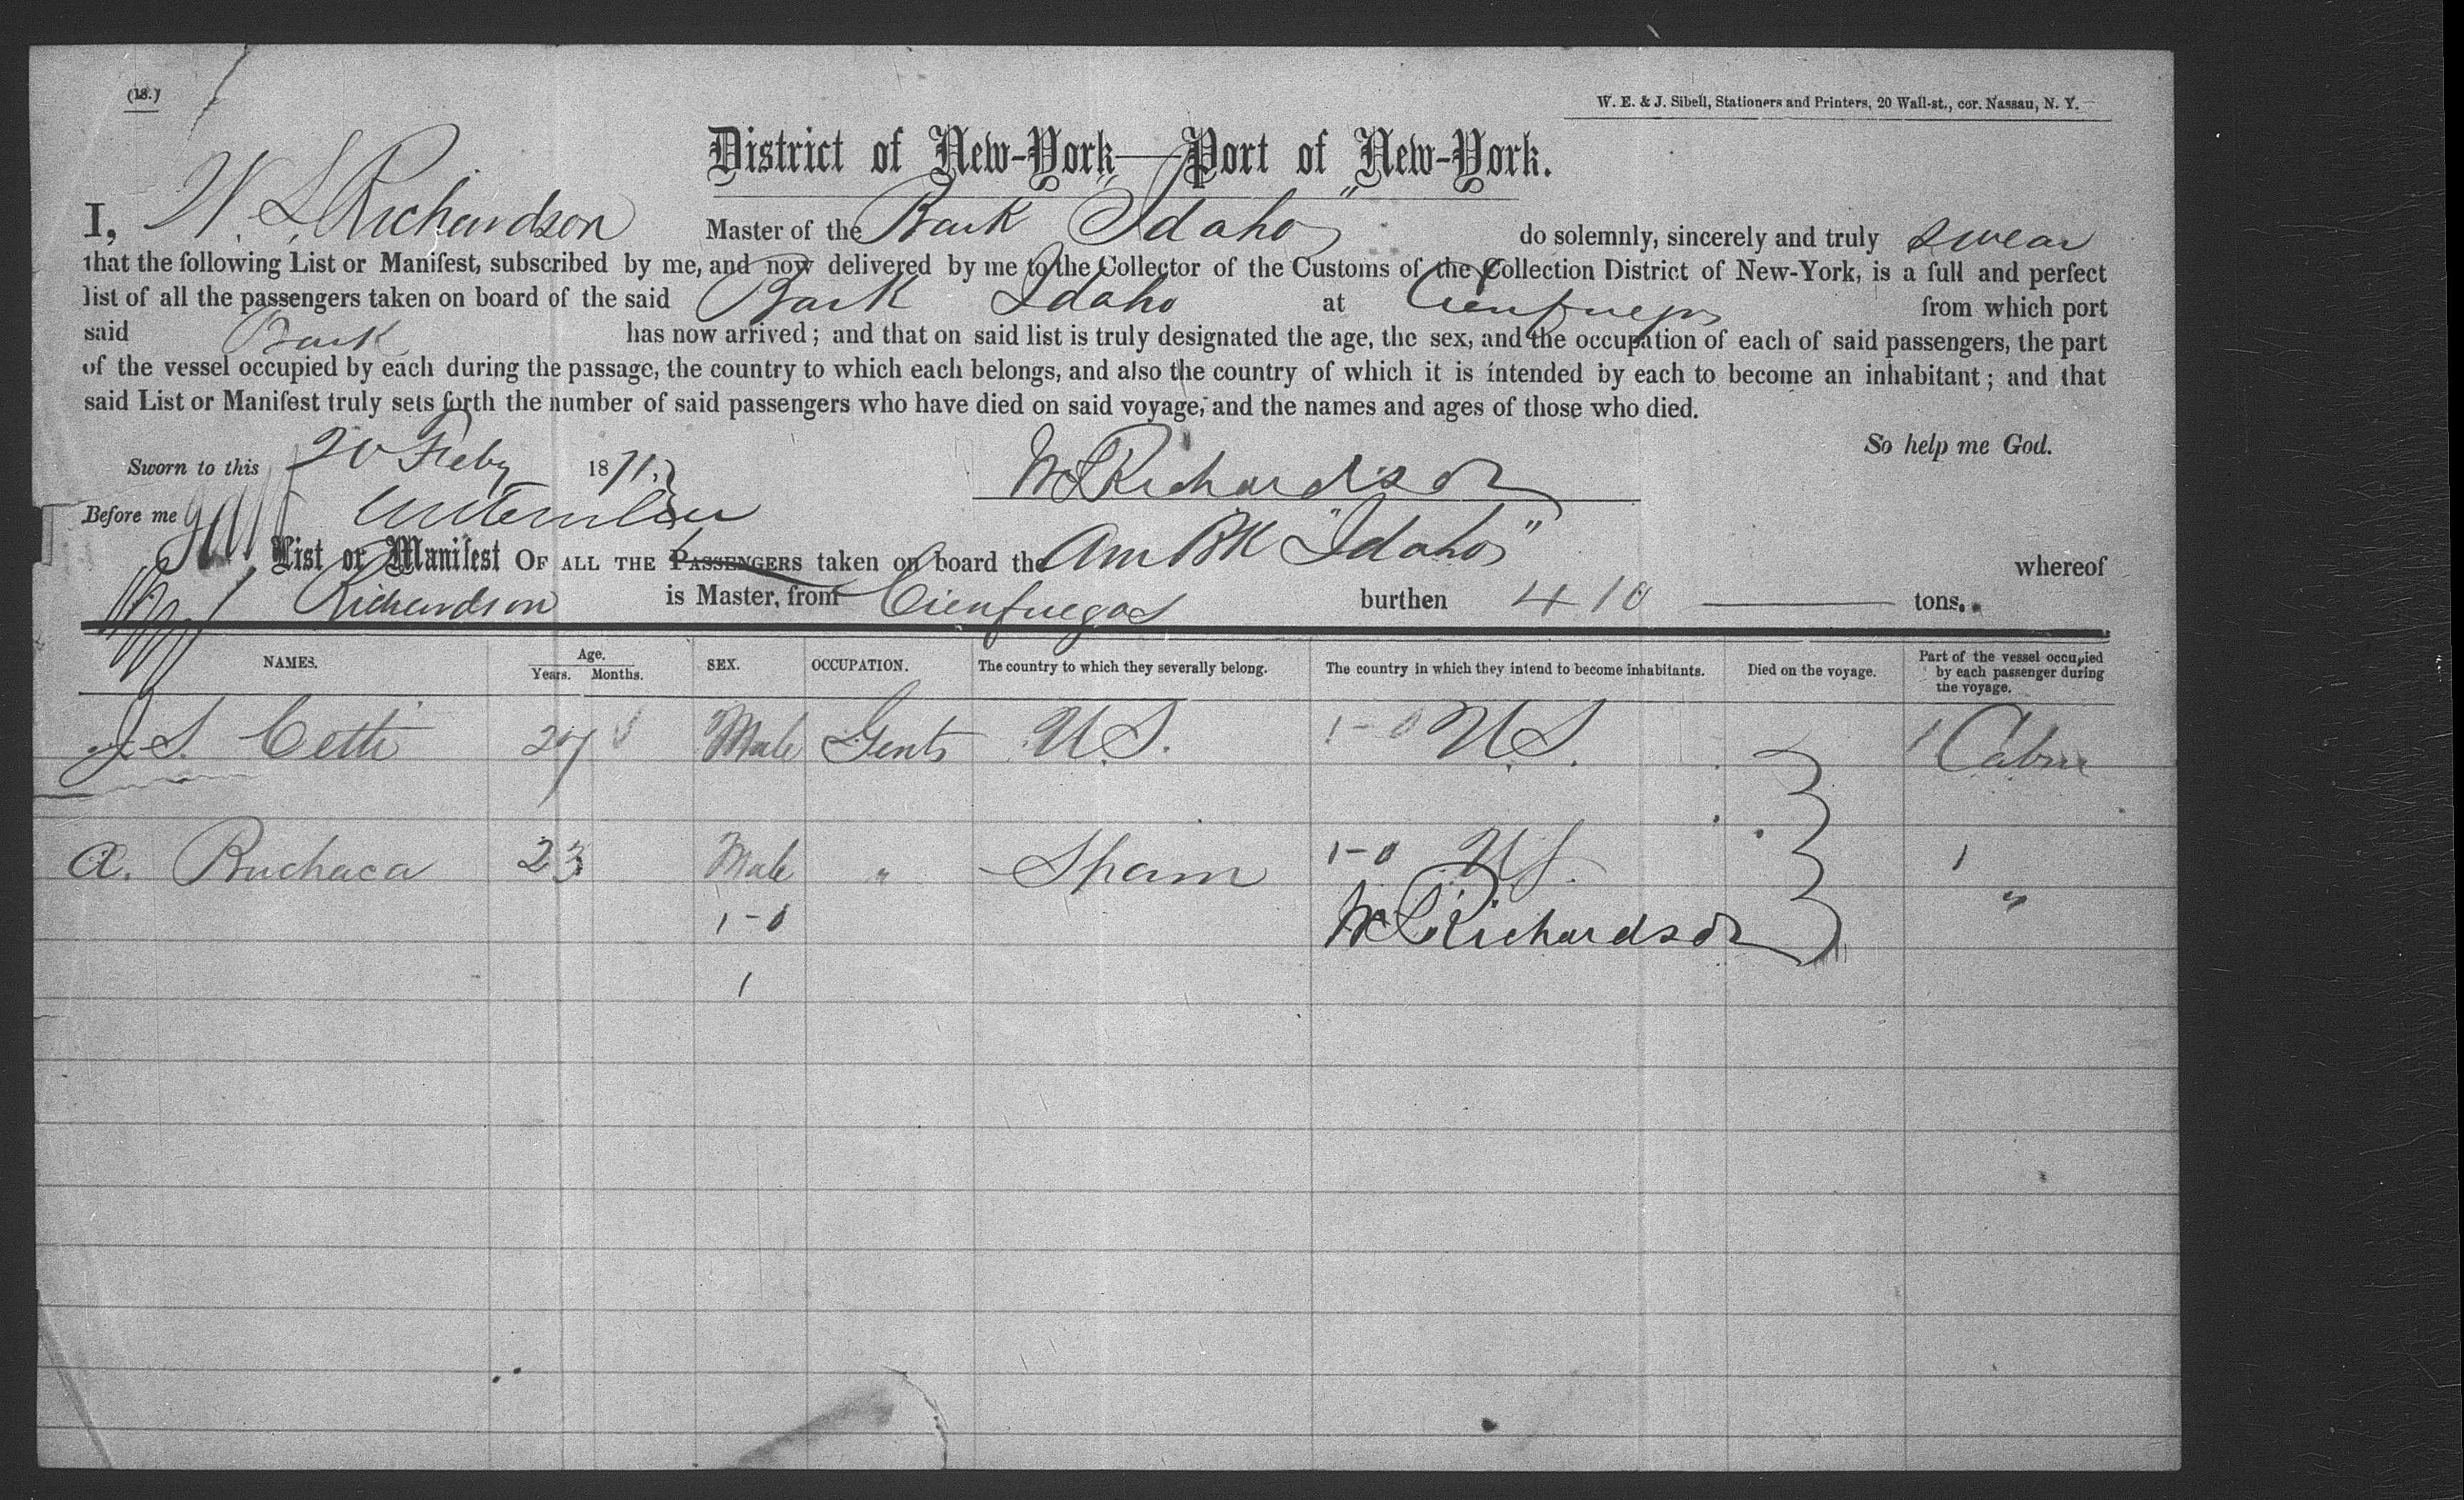 (18.)
W. E. & J. Sibell, Stationers and Printers, 20 Wall-st., cor. Nassau, N. Y.
District of New-York—Port of New-York.
I, W. S. Richardson Master of the Bark "Idaho" do solemnly, sincerely and truly swear
that the following List or Manifest, subscribed by me, and now delivered by me to the Collector of the Customs of the Collection District of New-York, is a full and perfect
list of all the passengers taken on board of the said Bark Idaho at Cienfuegos from which port
said Bark has now arrived; and that on said list is truly designated the age, the sex, and the occupation of each of said passengers, the part
of the vessel occupied by each during the passage, the country to which each belongs, and also the country of which it is intended by each to become an inhabitant; and that
said List or Manifest truly sets forth the number of said passengers who have died on said voyage, and the names and ages of those who died.
So help me God.
Sworn to this 20 Feby 1871. W S Richardson
Before me
List or Manifest OF ALL THE PASSENGERS taken on board the Am Bk "Idaho" whereof
Richardson is Master, from Cienfuegos burthen 410 tons.
NAMES. Age. Years. Months. SEX. OCCUPATION. The country to which they severally belong. The country in which they intend to become inhabitants. Died on the voyage. Part of the vessel occupied by each passenger during the voyage.
J. S. Cetti 27 Male Gents U.S. 1-0 U.S. 1 Cabin
A. Ruchaca 23 Male " Spain 1-0 U.S. 1 "
1-0 W S Richardson
1